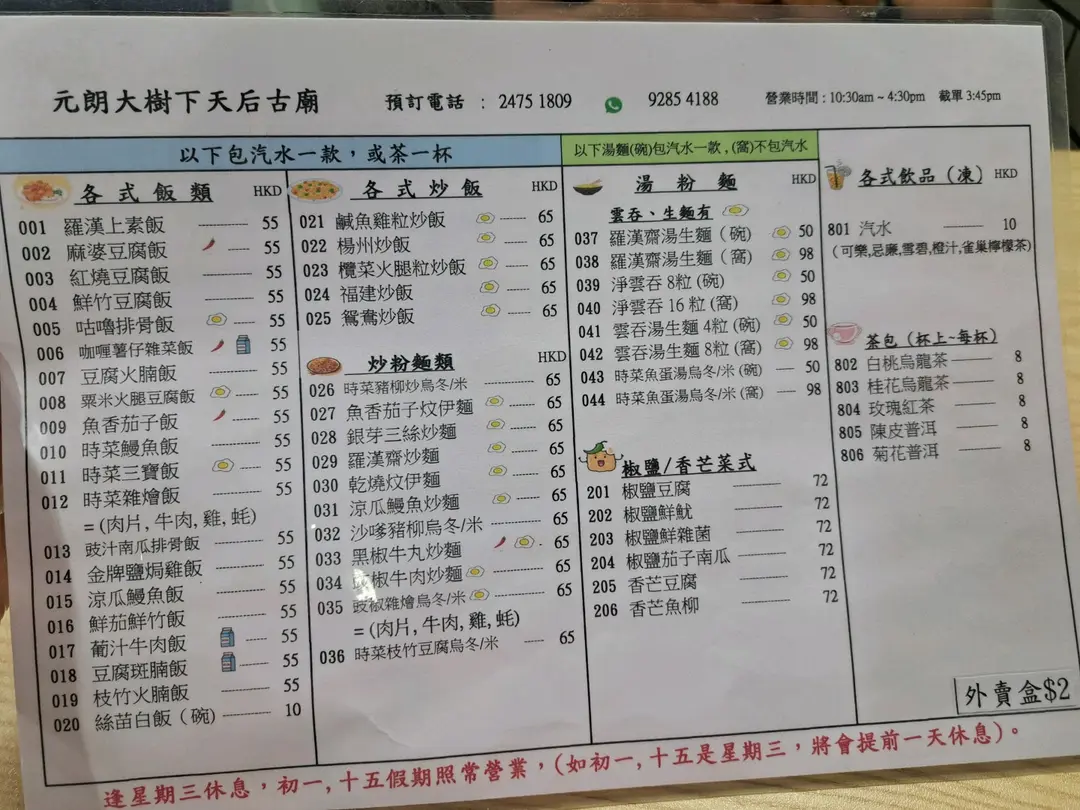 元朗大樹下天后古廟
預訂電話 : 2475 1809 9285 4188
營業時間 : 10:30am ~ 4:30pm 截單 3:45pm
以下包汽水一款，或茶一杯
各式飯類 HKD
001 羅漢上素飯 55
002 麻婆豆腐飯 55
003 紅燒豆腐飯 55
004 鮮竹豆腐飯 55
005 咕嚕排骨飯 55
006 咖喱薯仔雜菜飯 55
007 豆腐火腩飯 55
008 粟米火腿豆腐飯 55
009 魚香茄子飯 55
010 時菜鰻魚飯 55
011 時菜三寶飯 55
012 時菜雜燴飯 55
= (肉片, 牛肉, 雞, 蚝)
013 豉汁南瓜排骨飯 55
014 金牌鹽焗雞飯 55
015 涼瓜鰻魚飯 55
016 鮮茄鮮竹飯 55
017 葡汁牛肉飯 55
018 豆腐斑腩飯 55
019 枝竹火腩飯 55
020 絲苗白飯（碗） 10
各式炒飯 HKD
021 鹹魚雞粒炒飯 65
022 楊州炒飯 65
023 欖菜火腿粒炒飯 65
024 福建炒飯 65
025 鴛鴦炒飯 65
炒粉麵類 HKD
026 時菜豬柳炒烏冬/米 65
027 魚香茄子炆伊麵 65
028 銀芽三絲炒麵 65
029 羅漢齋炒麵 65
030 乾燒炆伊麵 65
031 涼瓜鰻魚炒麵 65
032 沙嗲豬柳烏冬/米 65
033 黑椒牛丸炒麵 65
034 椒牛肉炒麵 65
035 豉椒雜燴烏冬/米 65
= (肉片, 牛肉, 雞, 蚝)
036 時菜枝竹豆腐烏冬/米 65
以下湯麵(碗)包汽水一款 , (窩)不包汽水
湯粉麵 HKD
雲吞、生麵有
037 羅漢齋湯生麵（碗） 50
038 羅漢齋湯生麵（窩） 98
039 淨雲吞 8粒 (碗) 50
040 淨雲吞 16 粒 (窩) 98
041 雲吞湯生麵 4粒 (碗) 50
042 雲吞湯生麵 8粒 (窩) 98
043 時菜魚蛋湯烏冬/米 (碗) 50
044 時菜魚蛋湯烏冬/米 (窩) 98
椒鹽/香芒菜式
201 椒鹽豆腐 72
202 椒鹽鮮魷 72
203 椒鹽鮮雜菌 72
204 椒鹽茄子南瓜 72
205 香芒豆腐 72
206 香芒魚柳 72
各式飲品（凍） HKD
801 汽水 10
（可樂,忌廉,雪碧,橙汁,雀巢檸檬茶）
茶包（杯上~每杯）
802 白桃烏龍茶 8
803 桂花烏龍茶 8
804 玫瑰紅茶 8
805 陳皮普洱 8
806 菊花普洱 8
外賣盒$2
逢星期三休息，初一, 十五假期照常營業，(如初一, 十五是星期三，將會提前一天休息)。